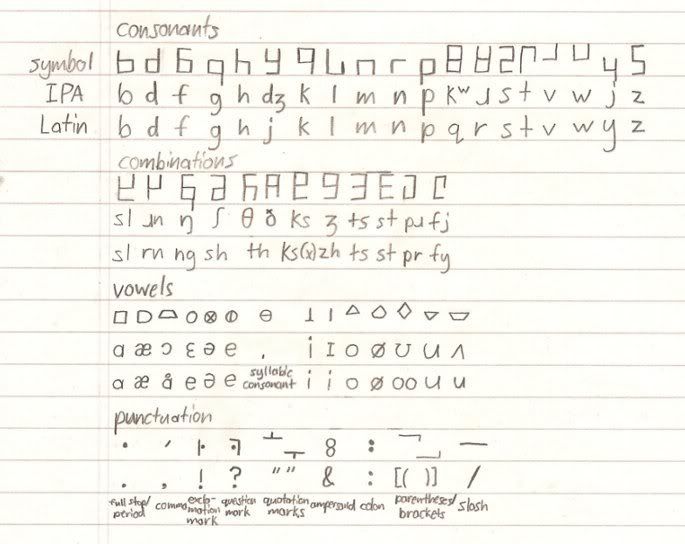 consonants
symbol
IPA b d f g h dʒ k l m n p kʷ ɹ s t v w j z
Latin b d f g h j k l m n p q r s t v w y z
combinations
sl ɹn ŋ ʃ θ ð ks ʒ ts st pɹ fj
sl rn ng sh th ks(x) zh ts st pr fy
vowels
ɑ æ ɔ ɛ ə e , i ɪ o ø ʊ u ʌ
a æ å e ə e syllabic consonant i i o ø oo u u
punctuation
. , ! ? " " & : [( )] /
full stop/period comma exclamation mark question mark quotation marks ampersand colon parentheses/brackets slash